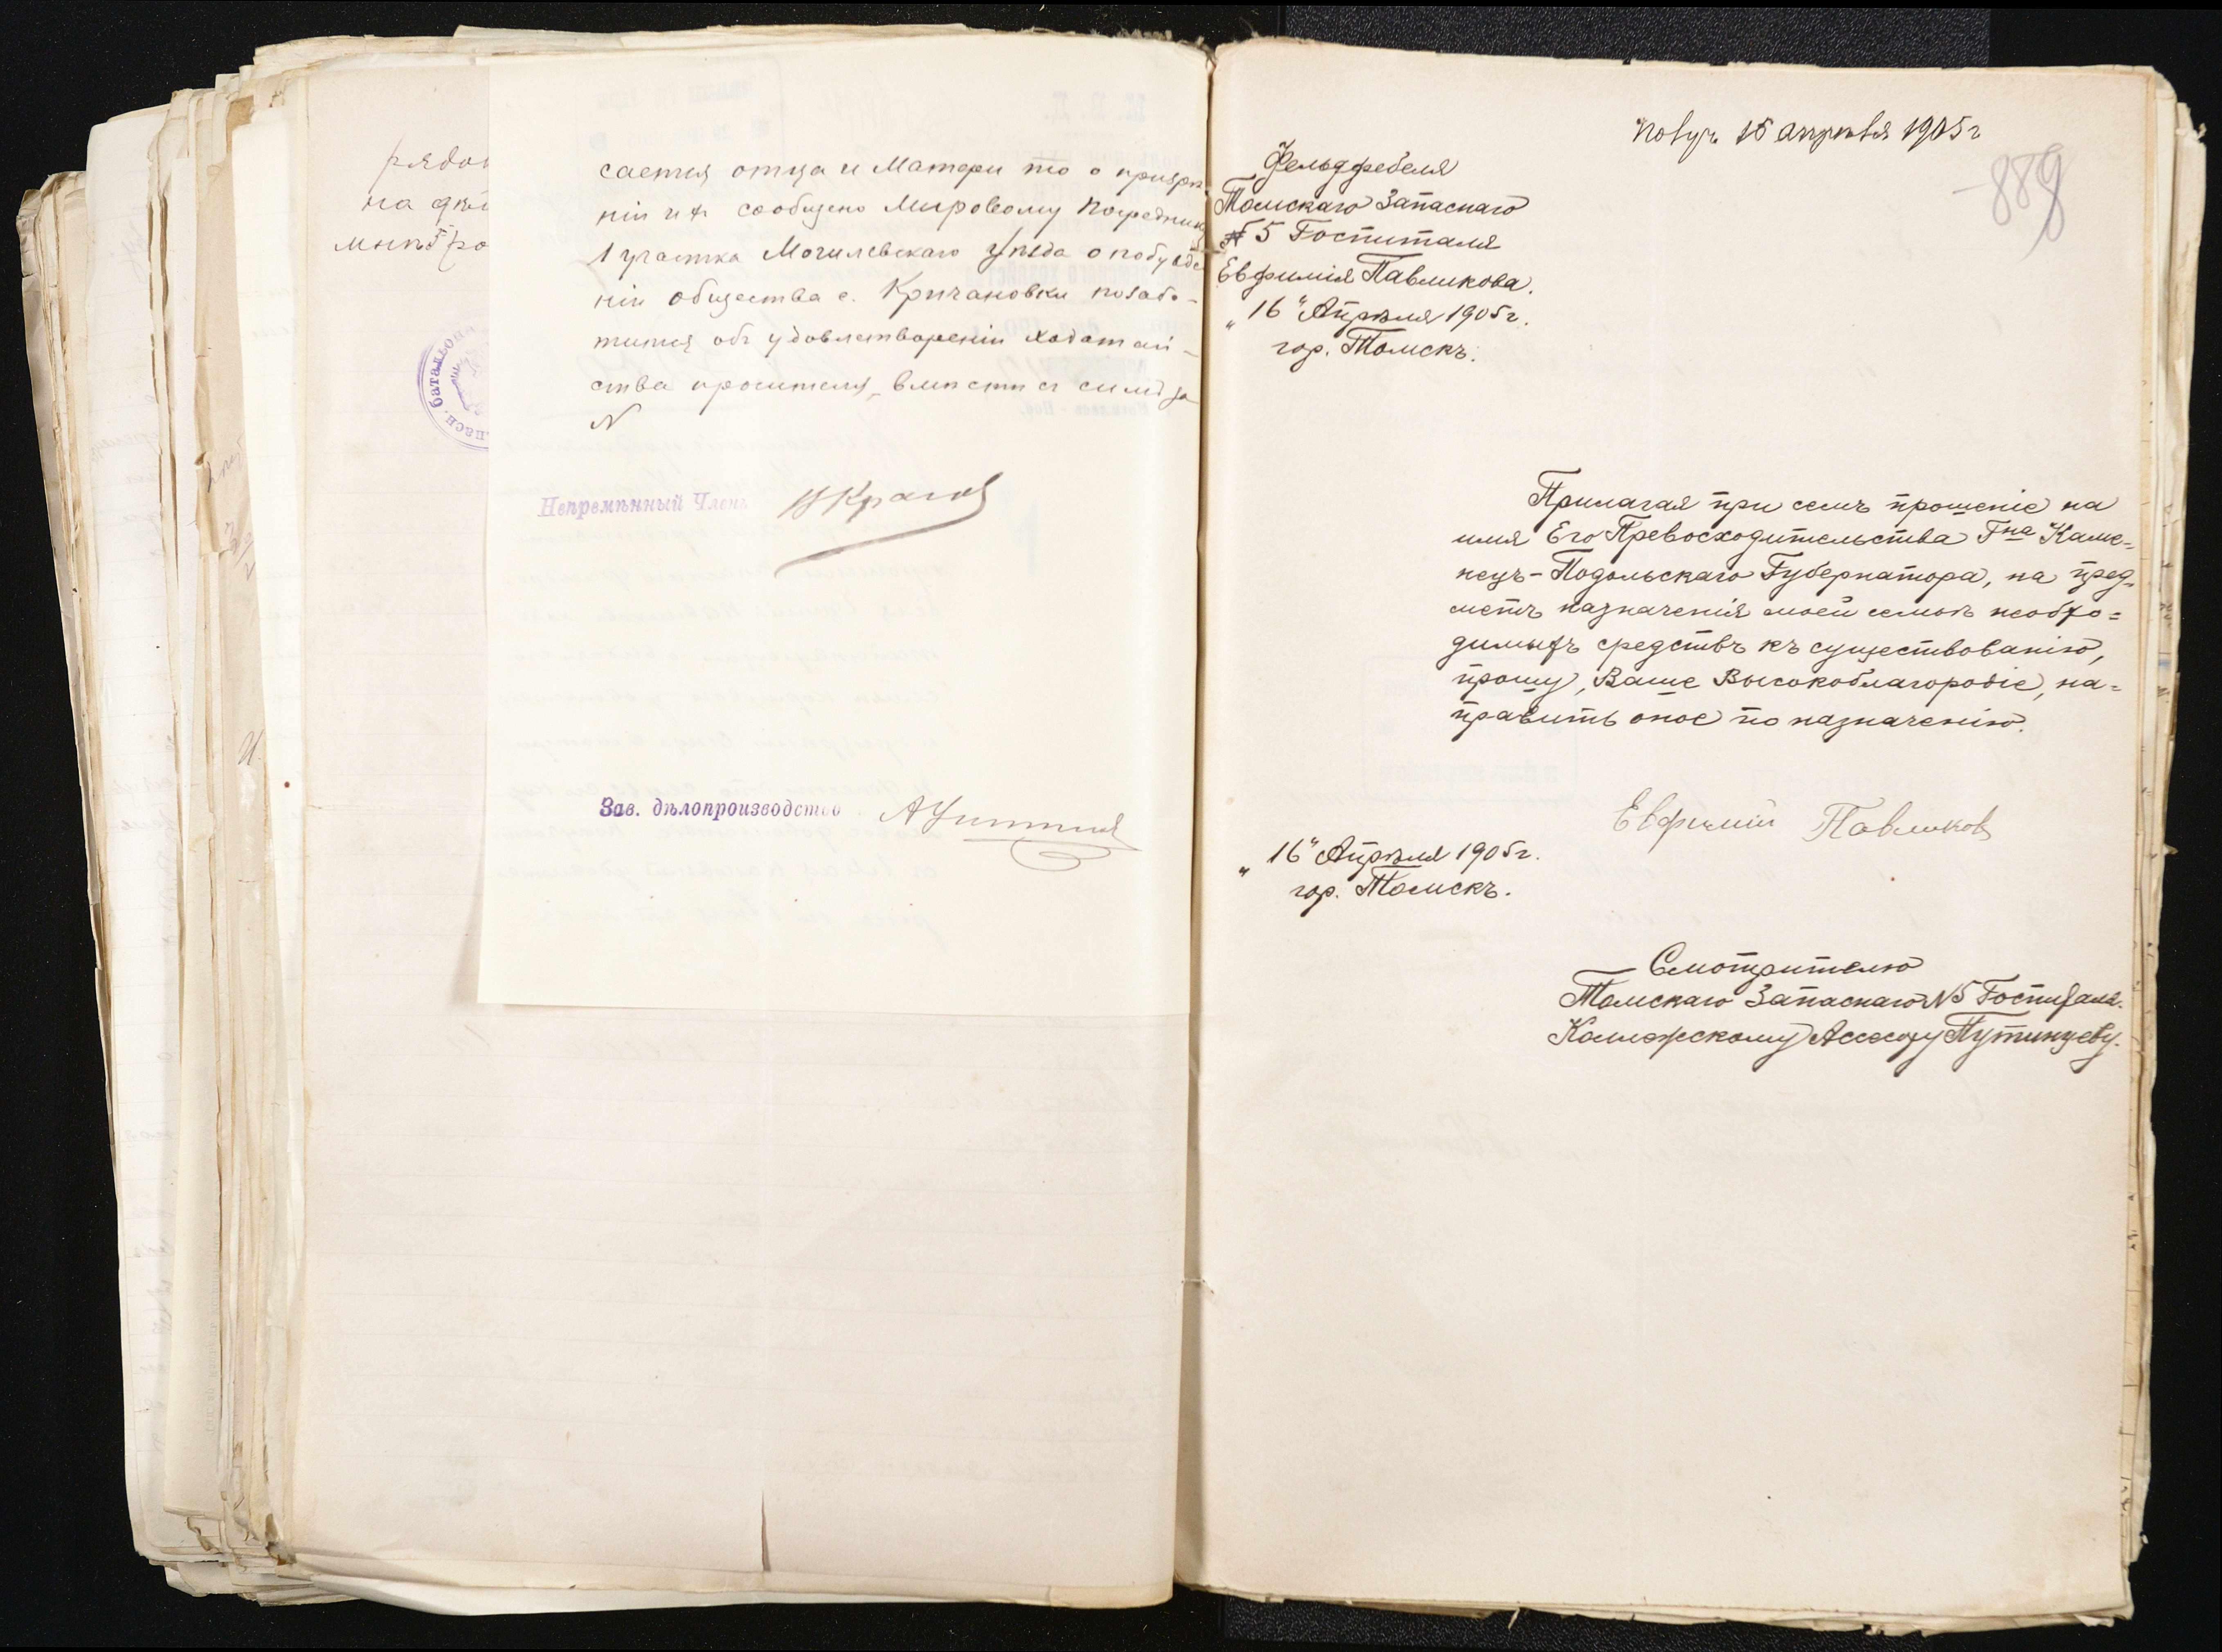 на
сается отца и Матери то о призрѣ
ніи ихъ сообщено Мировому Посреднику
1 участка Могилевскаго уѣзда о побужде
ніи общества с. Кричановки позабо-
титься объ удовлетвореніи ходатай-
ства просителя, вмѣстѣ съ симъ за
N
Непремѣнный Членъ
Зав. дѣлопроизводство
батальона
15 апрѣля 1905 г
889
Фельдфебеля
Томскаго Запаснаго
№ 5 Госпиталя
Евфимія Павликова.
„16" Апрѣля 1905 г.
гор. Томскъ.
Прилагая при семъ прошеніе на
имя Его Превосходительства Гна Каме=
нецъ-Подольскаго Губернатора, на пред=
метъ назначенія моей семьѣ необхо=
димыхъ средствъ къ существованію,
прошу, Ваше Высокоблагородіе, на=
править оное по назначенію.
Евфимій Павликовъ
„16" Апрѣля 1905 г.
гор. Томскъ.
Смотрителю
Томскаго Запаснаго N5 Госпиталя.
Коллежскому Ассесору Путинцеву.